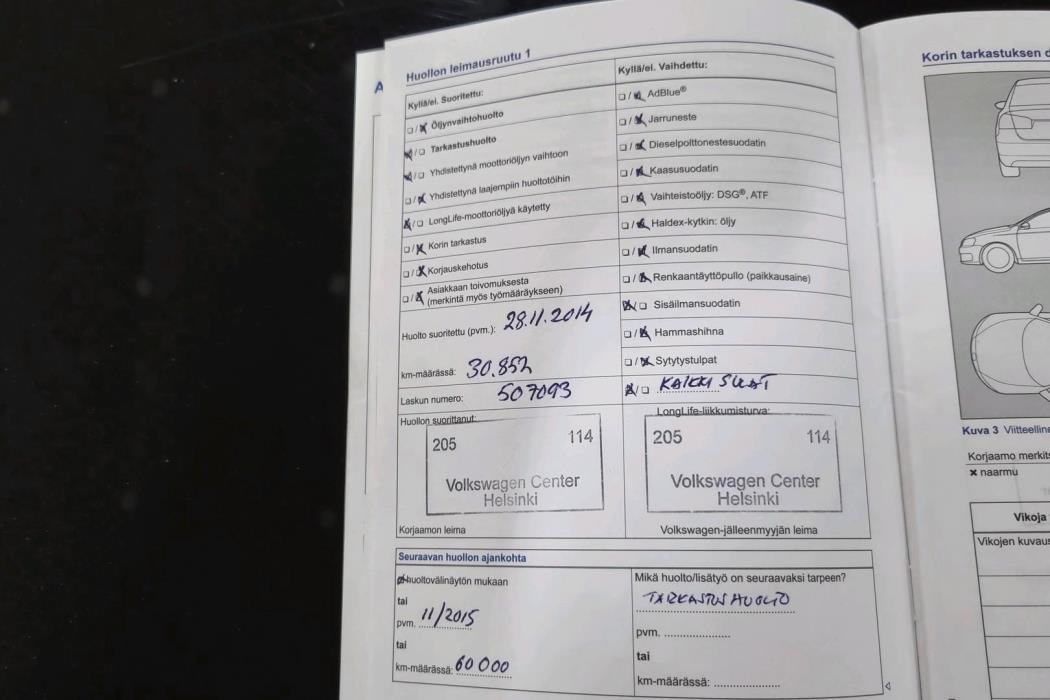 Huollon leimausruutu 1
Kyllä/ei. Suoritettu:
Öljynvaihtohuolto
Tarkastushuolto
Yhdistettynä moottoriöljyn vaihtoon
Yhdistettynä laajempiin huoltotöihin
LongLife-moottoriöljyä käytetty
Korin tarkastus
Korjauskehotus
Asiakkaan toivomuksesta
(merkintä myös työmääräykseen)
Huolto suoritettu (pvm.): 28.11.2014
km-määrässä: 30.852
Laskun numero: 507093
Huollon suorittanut:
205 114
Volkswagen Center
Helsinki
Korjaamon leima
Kyllä/ei. Vaihdettu:
AdBlue®
Jarruneste
Dieselpolttonestesuodatin
Kaasusuodatin
Vaihteistoöljy: DSG®, ATF
Haldex-kytkin: öljy
Ilmansuodatin
Renkaantäyttöpullo (paikkausaine)
Sisäilmansuodatin
Hammashihna
Sytytystulpat
KAIKKI SULAT
LongLife-liikkumisturva:
205 114
Volkswagen Center
Helsinki
Volkswagen-jälleenmyyjän leima
Seuraavan huollon ajankohta
huoltovälinäytön mukaan
tai
pvm. 11/2015
tai
km-määrässä: 60 000
Mikä huolto/lisätyö on seuraavaksi tarpeen?
TARKASTUSHUOLTO
pvm.
tai
km-määrässä:
A
Korin tarkastuksen
Kuva 3 Viitteelline
Korjaamo merkits
× naarmu
Vikoja
Vikojen kuvaus